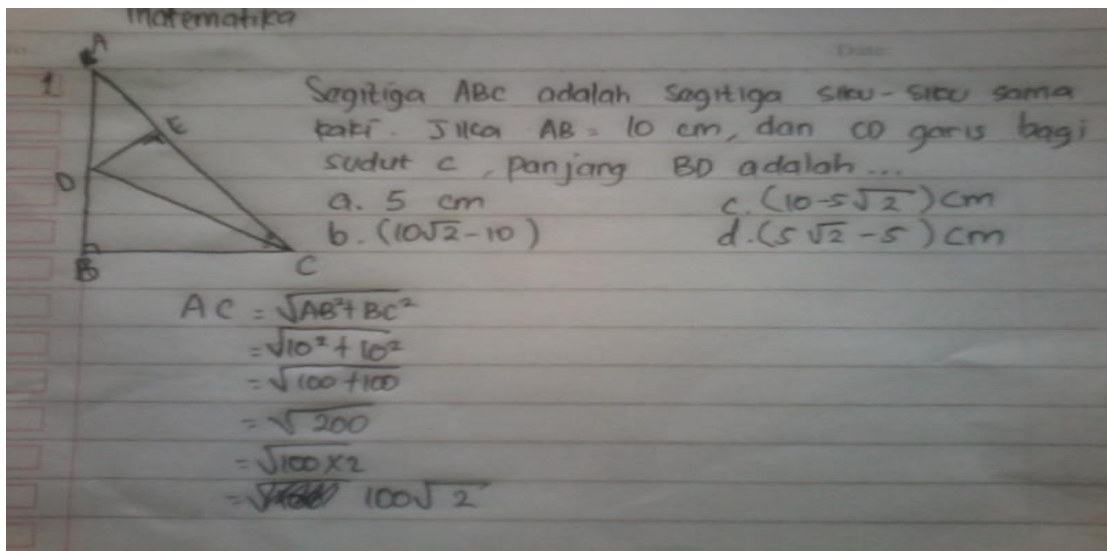 matematika
Date:
1
A
E
D
B
C
Segitiga ABC adalah segitiga siku-siku sama
kaki. Jika AB = 10 cm, dan CD garis bagi
sudut C, panjang BD adalah...
a. 5 cm c. (10-5√2) cm
b. (10√2-10) d. (5√2-5) cm
AC = √AB²+BC²
= √10²+10²
= √100+100
= √200
= √100×2
= 100√2